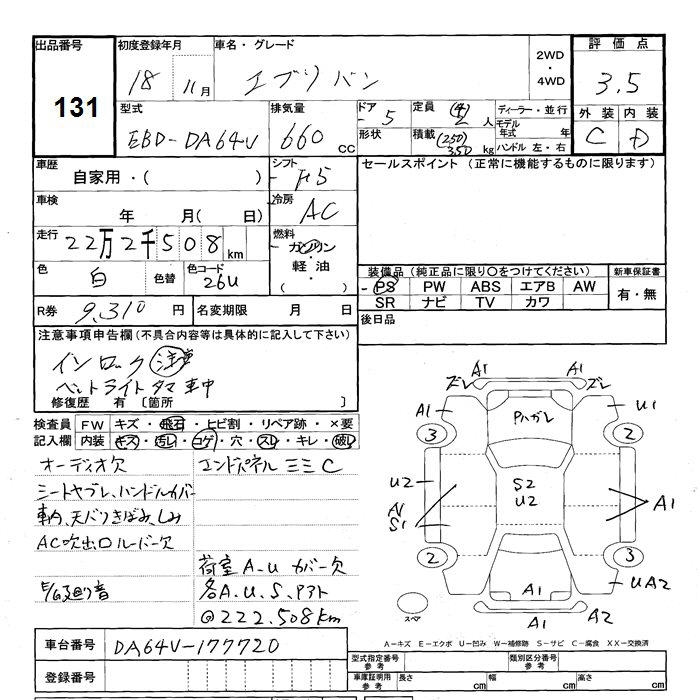 出品番号 初度登録年月 車名・グレード 2WD・4WD 評価点
131 18 11月 エブリバン 3.5
外装 内装
C D
型式 排気量 ドア 定員 (4) ディーラー・並行
EBD-DA64V 660 CC - 5 2 人 モデル年式 年
形状 積載 (250) 350 kg ハンドル 左・右
車歴 シフト セールスポイント (正常に機能するものに限ります)
自家用・( ) F5
車検 冷房
年 月( 日) AC
走行 燃料
22万2千508 km ガソリン・軽油・( )
色 色替 色コード
白 26U
装備品(純正品に限り○をつけてください) 新車保証書
PS PW ABS エアB AW 有・無
SR ナビ TV カワ
R券 9,310 円 名変期限 月 日 後日品
注意事項申告欄(不具合内容等は具体的に記入して下さい)
インロック 注意
ヘットライトタマ 車中
修復歴 有 〔箇所 〕
検査員記入欄 FW キズ・飛石・ヒビ割・リペア跡・×要
内装 キズ・汚レ・コゲ・穴・スレ・キレ・破レ
オーディオ欠 エンドパネル ミミC
シートヤブレ、ハンドルカバー
車内、天バリきばみ、しみ
AC吹出口ルーバー欠
荷室A-U カバー欠
E/G廻り音 各A.U.S.P3ト
@222.508km
車台番号 DA64V-177720
登録番号
A1 A1
ズレ ズレ
A1 PハガレU1
3 2
U2 S2 U2
A1 S1 A1
2 3
A1 UA2
スペア A1 A2
A-キズ E-エクボ U-凹み W-補修跡 S-サビ C-腐食 XX-交換済
型式指定番号 参考 類別区分番号 参考
車庫証明用 参考 長さ cm 幅 cm 高さ cm